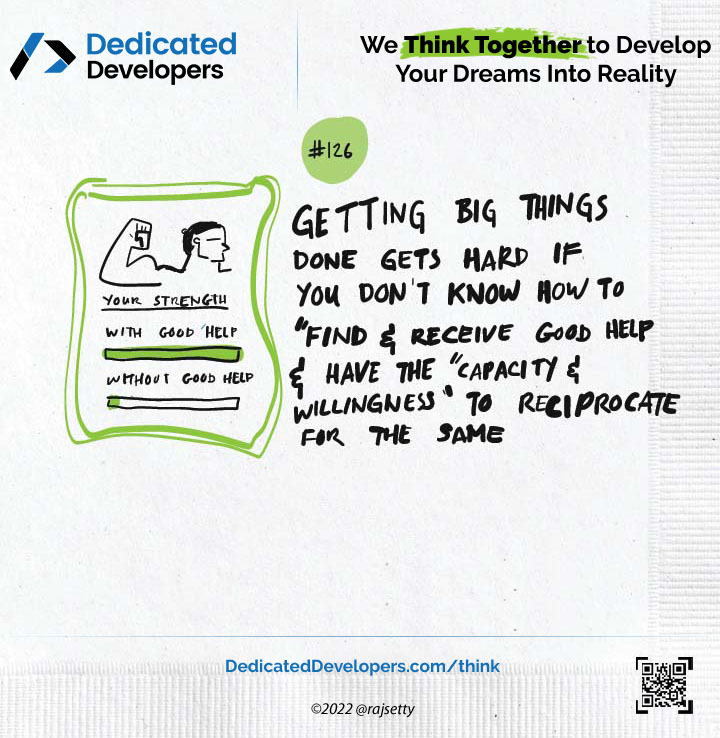 Dedicated
Developers
We Think Together to Develop
Your Dreams Into Reality
#126
YOUR STRENGTH
WITH GOOD HELP
WITHOUT GOOD HELP
GETTING BIG THINGS
DONE GETS HARD IF
YOU DON'T KNOW HOW TO
"FIND & RECEIVE GOOD HELP
& HAVE THE "CAPACITY &
WILLINGNESS" TO RECIPROCATE
FOR THE SAME
DedicatedDevelopers.com/think
©2022 @rajsetty